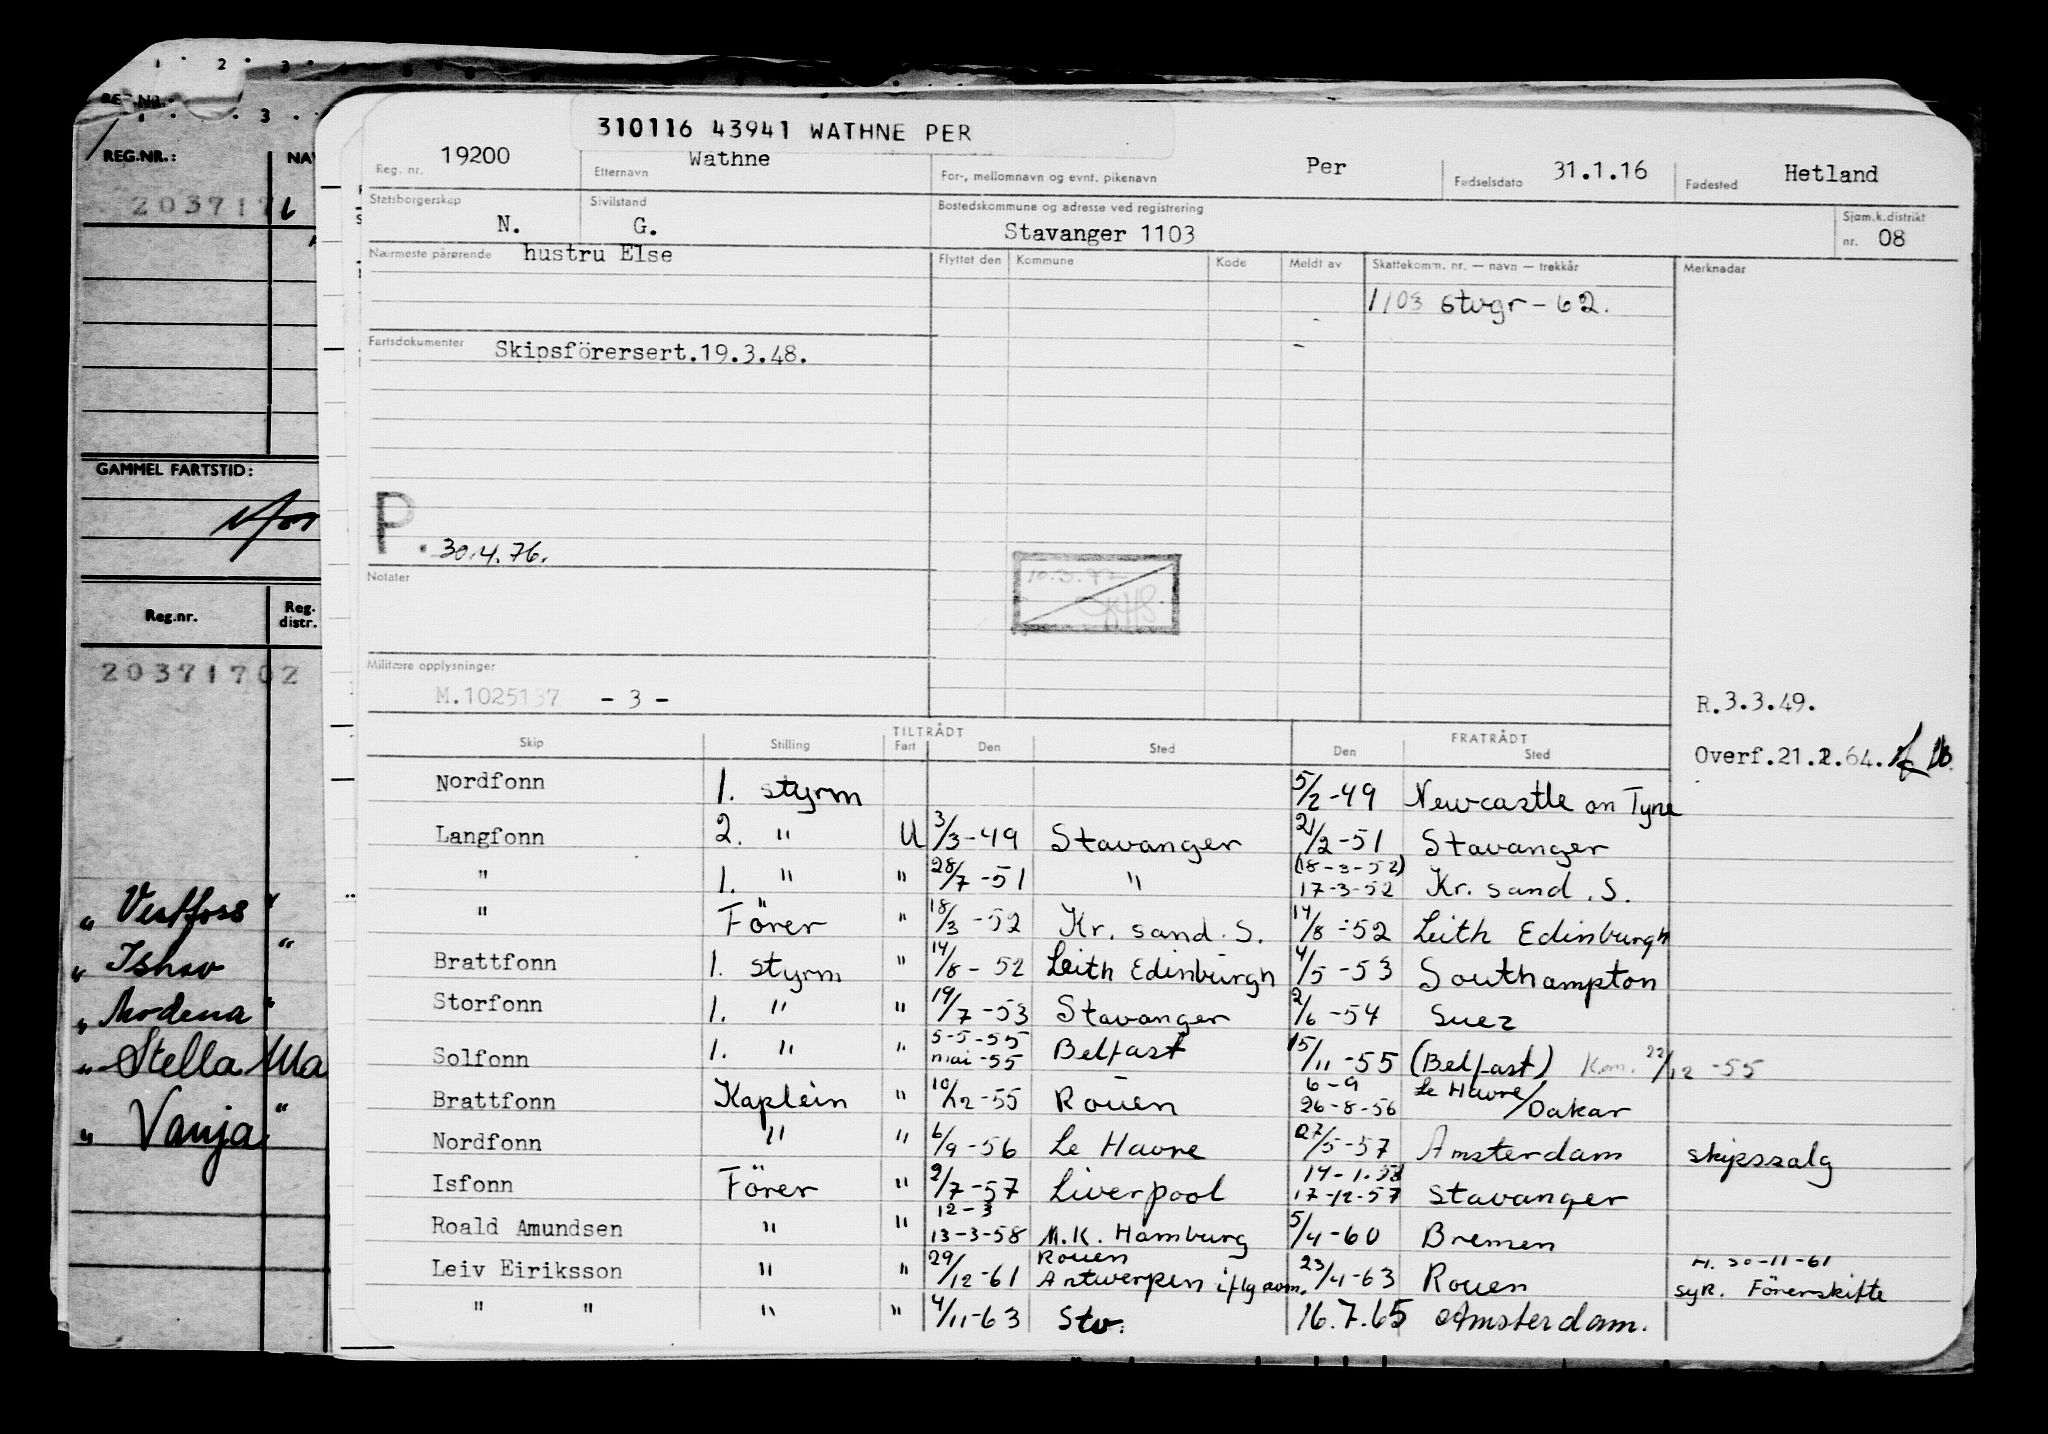 REG.NR.:
NAV
2037171
GAMMEL FARTSTID:
Reg.nr.
Reg. distr.
20371702
" Vestfoss "
" Ishav "
" Modena "
" Stella Ma
" Vanja "
310116 43941 WATHNE PER
Reg. nr. 19200 Etternavn Wathne For-, mellomnavn og evnt. pikenavn Per Fødselsdato 31.1.16 Fødested Hetland
Statsborgerskap N. Sivilstand G. Bostedskommune og adresse ved registrering Stavanger 1103 Sjøm.k.distrikt nr. 08
Nærmeste pårørende hustru Else Flyttet den Kommune Kode Meldt av Skattekomm. nr. — navn — trekkår Merknader
1103 Stvgr - 62.
Fartsdokumenter Skipsförersert.19.3.48.
P. 30.4.76.
Notater
Militære opplysninger
M.1025137 - 3 -
R.3.3.49.
Overf.21.2.64.
TILTRÅDT FRATRÅDT
Skip Stilling Fart Den Sted Den Sted
Nordfonn 1. styrm 5/2-49 Newcastle on Tyne
Langfonn 2. " U 3/3-49 Stavanger 21/2-51 Stavanger
" 1. " " 28/7-51 " (18-3-52) 17-3-52 Kr. sand. S.
" Förer " 18/3-52 Kr. sand. S. 14/8-52 Leith Edinburgh
Brattfonn 1. styrm " 14/8-52 Leith Edinburgh 4/5-53 Southampton
Storfonn 1. " " 19/7-53 Stavanger 2/6-54 Suez
Solfonn 1. " " 5-5-55 mai-55 Belfast 15/11-55 (Belfast) Kom. 22/12-55
Brattfonn Kaptein " 10/12-55 Rouen 6-9 26-8-56 Le Havre/Dakar
Nordfonn " " 6/9-56 Le Havre 27/5-57 Amsterdam skipssalg
Isfonn Förer " 2/7-57 Liverpool 14-1-58 17-12-57 Stavanger
Roald Amundsen " " 12-3 13-3-58 M.K. Hamburg 5/4-60 Bremen
Leiv Eiriksson " " 29/12-61 Rouen Antwerpen iflg avm. 23/4-63 Rouen H. 30-11-61 syk. Förerskifte
" " " " 4/11-63 Stv. 16.7.65 Amsterdam.